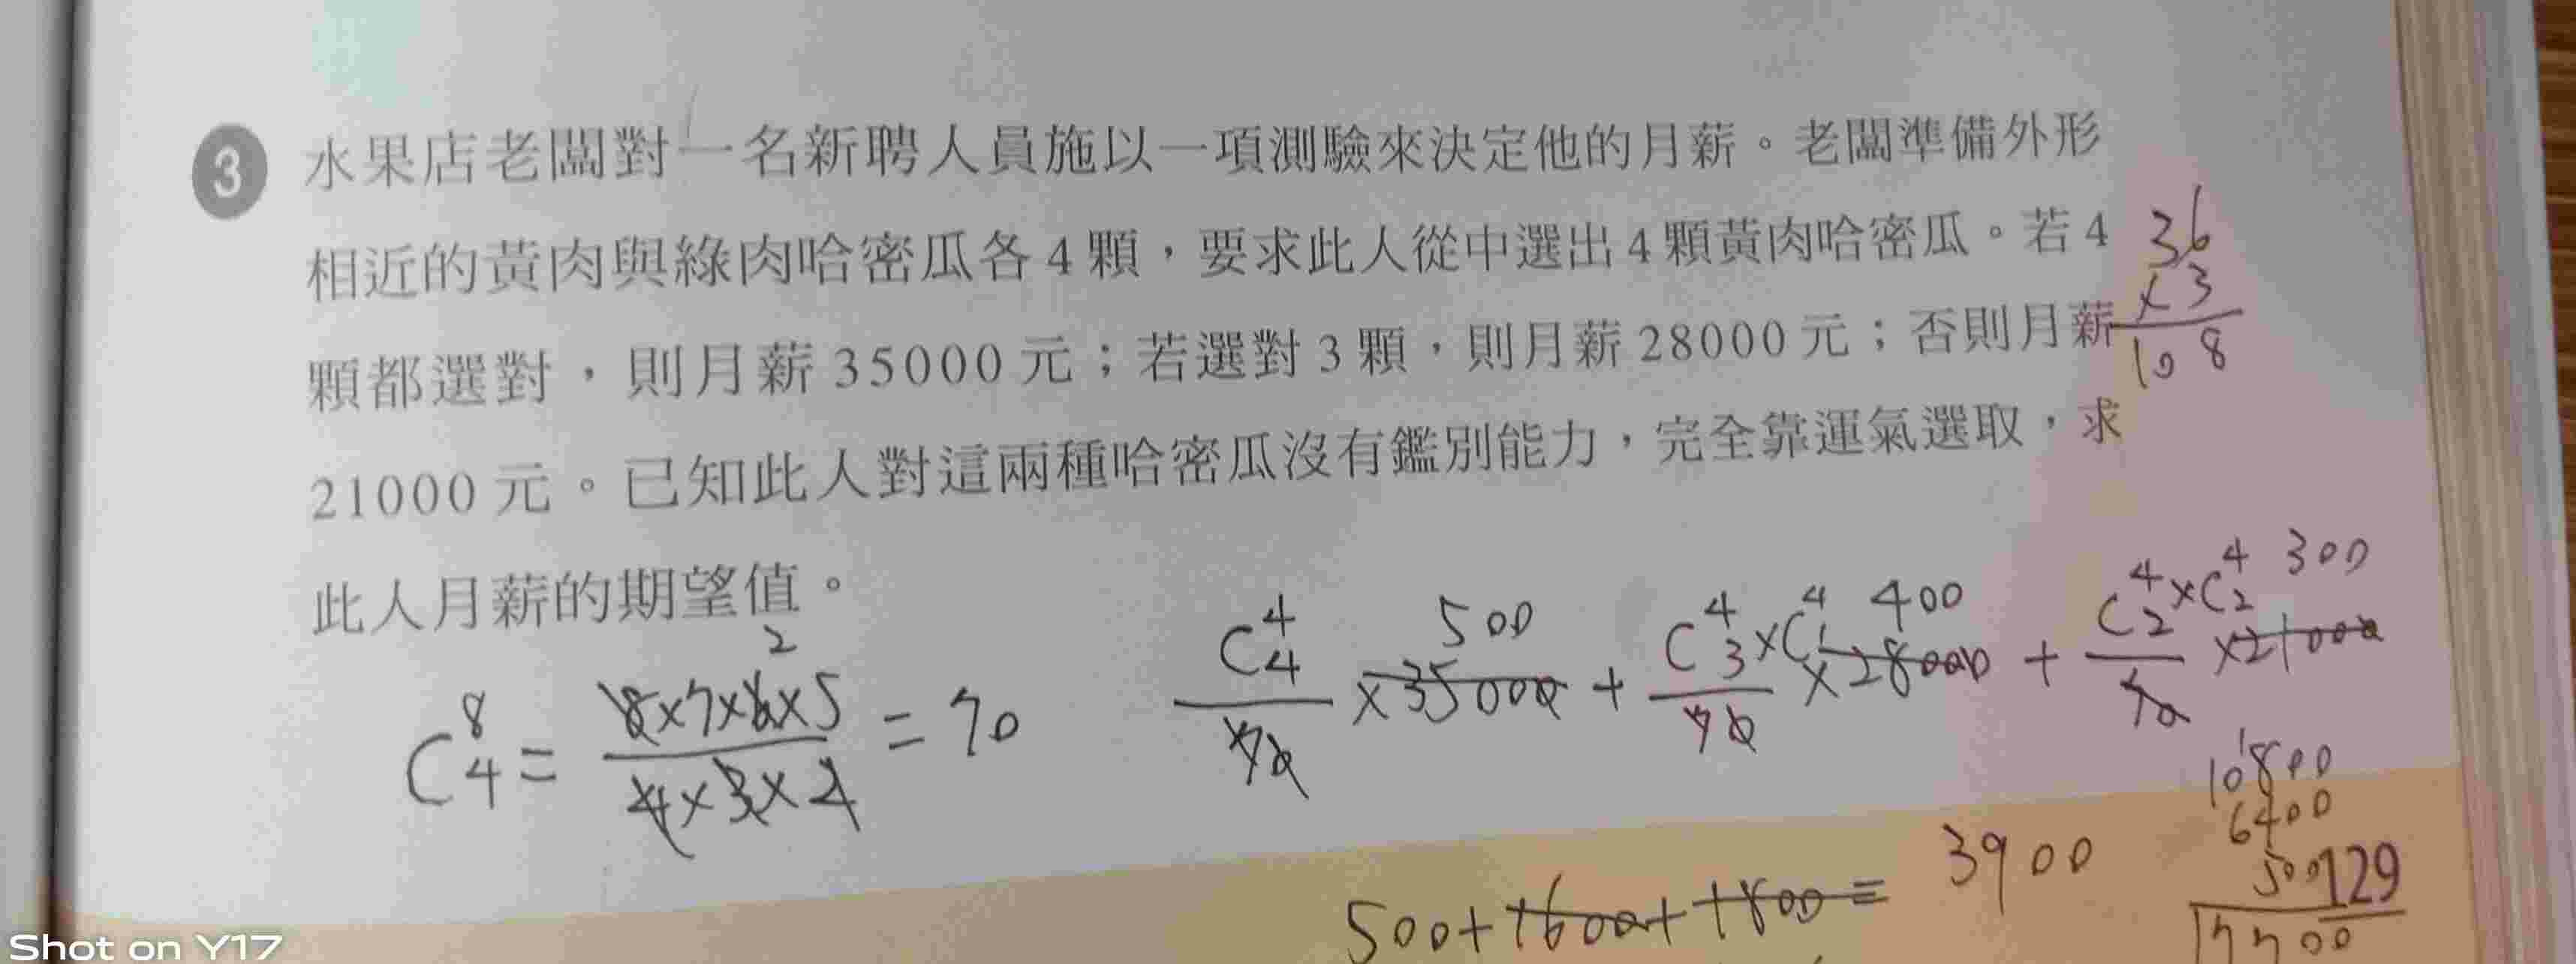 3 水果店老闆對一名新聘人員施以一項測驗來決定他的月薪。老闆準備外形
相近的黃肉與綠肉哈密瓜各4顆，要求此人從中選出4顆黃肉哈密瓜。若4
顆都選對，則月薪35000元；若選對3顆，則月薪28000元；否則月薪
21000元。已知此人對這兩種哈密瓜沒有鑑別能力，完全靠運氣選取，求
此人月薪的期望值。
36
×3
108
2
C 8 4 = 8×7×6×5 / 4×3×2 = 70
500 400 300
C 4 4 / 70 ×35000 + C 4 3 ×C 4 1 / 70 ×28000 + C 4 2 ×C 4 2 / 70 ×21000
500+1600+1800= 3900
10800
6400
500
129
17700
Shot on Y17